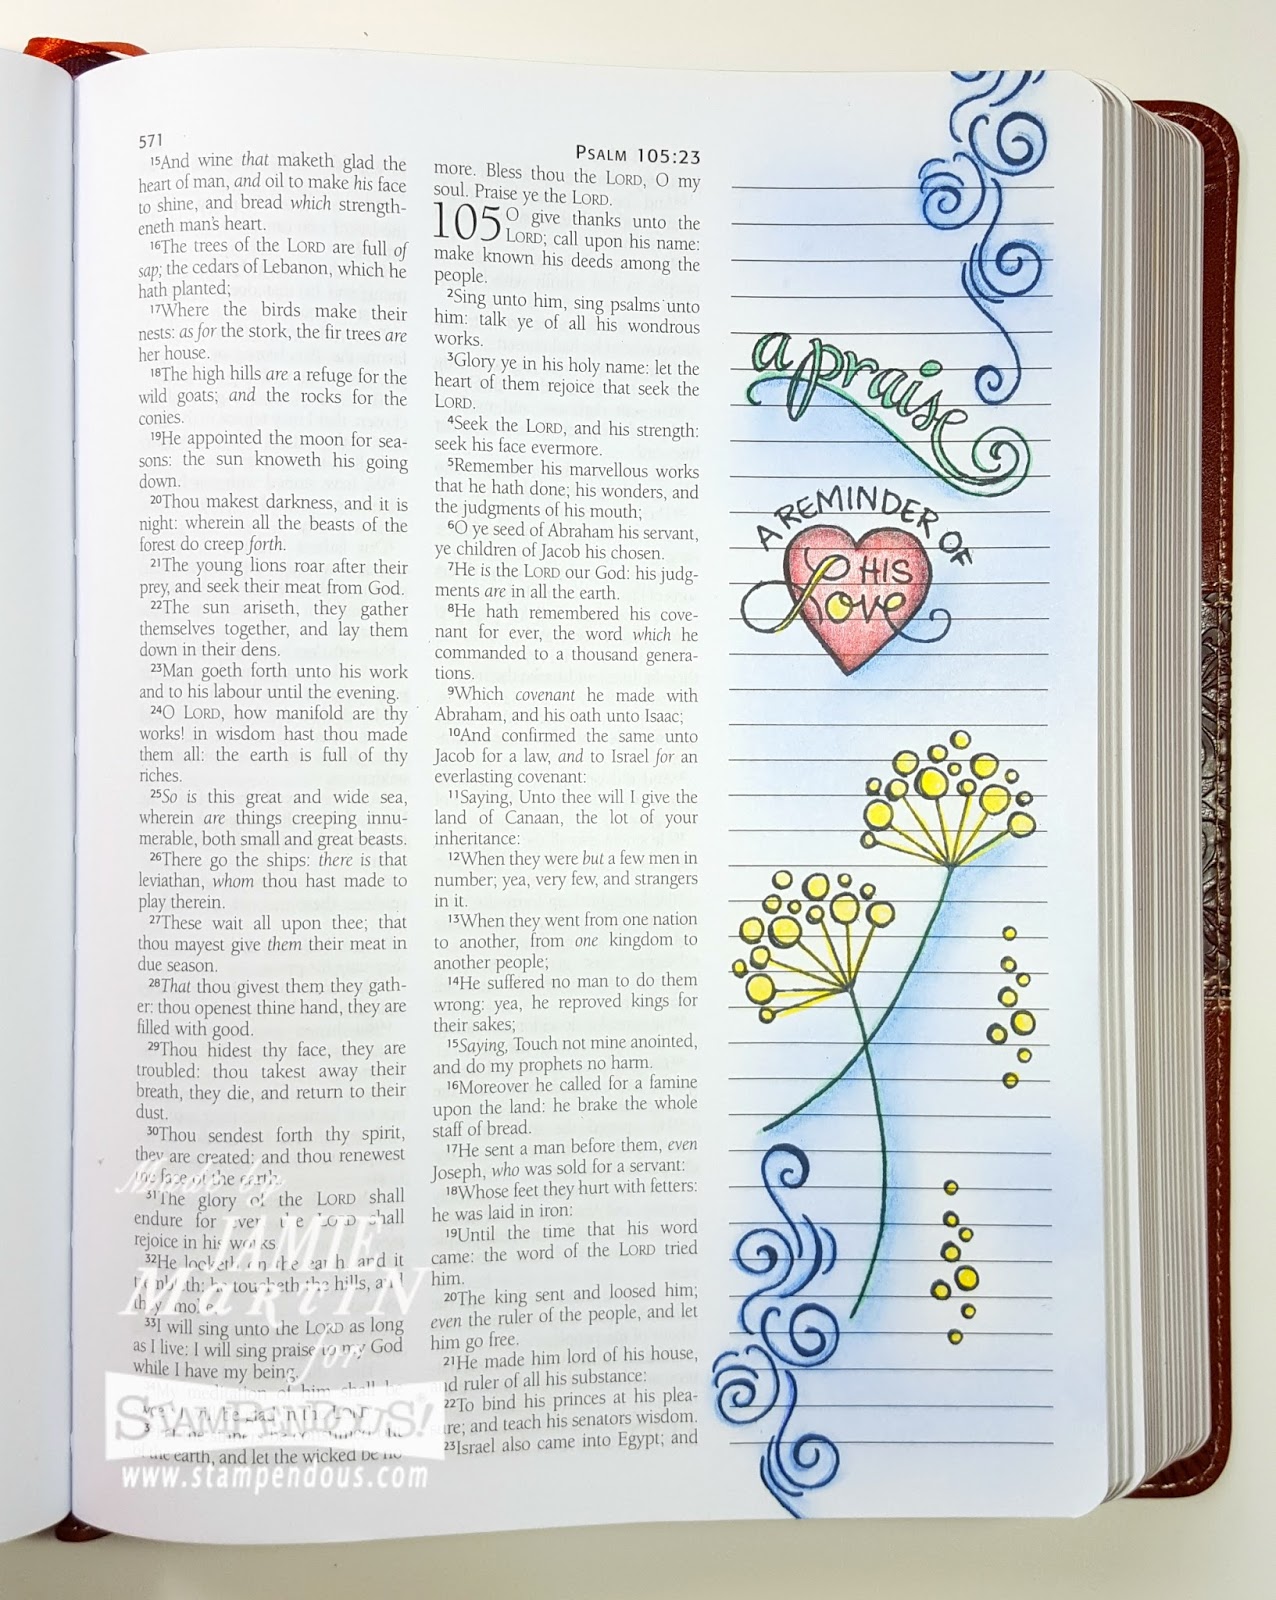 571
15And wine that maketh glad the
heart of man, and oil to make his face
to shine, and bread which strength-
eneth man's heart.
16The trees of the LORD are full of
sap; the cedars of Lebanon, which he
hath planted;
17Where the birds make their
nests: as for the stork, the fir trees are
her house.
18The high hills are a refuge for the
wild goats; and the rocks for the
conies.
19He appointed the moon for sea-
sons: the sun knoweth his going
down.
20Thou makest darkness, and it is
night: wherein all the beasts of the
forest do creep forth.
21The young lions roar after their
prey, and seek their meat from God.
22The sun ariseth, they gather
themselves together, and lay them
down in their dens.
23Man goeth forth unto his work
and to his labour until the evening.
24O LORD, how manifold are thy
works! in wisdom hast thou made
them all: the earth is full of thy
riches.
25So is this great and wide sea,
wherein are things creeping innu-
merable, both small and great beasts.
26There go the ships: there is that
leviathan, whom thou hast made to
play therein.
27These wait all upon thee; that
thou mayest give them their meat in
due season.
28That thou givest them they gath-
er: thou openest thine hand, they are
filled with good.
29Thou hidest thy face, they are
troubled: thou takest away their
breath, they die, and return to their
dust.
30Thou sendest forth thy spirit,
they are created: and thou renewest
the face of the earth.
31The glory of the LORD shall
endure for ever: the LORD shall
rejoice in his works.
32He looketh on the earth, and it
he toucheth the hills, and
they
33I will sing unto the LORD as long
as I live: I will sing praise to my God
while I have my being.
My meditation of him shall be
glad in the
the earth, and let the wicked be no
PSALM 105:23
more. Bless thou the LORD, O my
soul. Praise ye the LORD.
105 O give thanks unto the
LORD; call upon his name:
make known his deeds among the
people.
2Sing unto him, sing psalms unto
him: talk ye of all his wondrous
works.
3Glory ye in his holy name: let the
heart of them rejoice that seek the
LORD.
4Seek the LORD, and his strength:
seek his face evermore.
5Remember his marvellous works
that he hath done; his wonders, and
the judgments of his mouth;
6O ye seed of Abraham his servant,
ye children of Jacob his chosen.
7He is the LORD our God: his judg-
ments are in all the earth.
8He hath remembered his cove-
nant for ever, the word which he
commanded to a thousand genera-
tions.
9Which covenant he made with
Abraham, and his oath unto Isaac;
10And confirmed the same unto
Jacob for a law, and to Israel for an
everlasting covenant:
11Saying, Unto thee will I give the
land of Canaan, the lot of your
inheritance:
12When they were but a few men in
number; yea, very few, and strangers
in it.
13When they went from one nation
to another, from one kingdom to
another people;
14He suffered no man to do them
wrong: yea, he reproved kings for
their sakes;
15Saying, Touch not mine anointed,
and do my prophets no harm.
16Moreover he called for a famine
upon the land: he brake the whole
staff of bread.
17He sent a man before them, even
Joseph, who was sold for a servant:
18Whose feet they hurt with fetters:
he was laid in iron:
19Until the time that his word
came: the word of the LORD tried
him.
20The king sent and loosed him;
even the ruler of the people, and let
him go free.
21He made him lord of his house,
and ruler of all his substance:
22To bind his princes at his plea-
sure; and teach his senators wisdom.
23Israel also came into Egypt; and
a praise
A REMINDER OF
HIS
Love
Made by
JAMIE
MARTIN
for
STAMPENDOUS!
www.stampendous.com